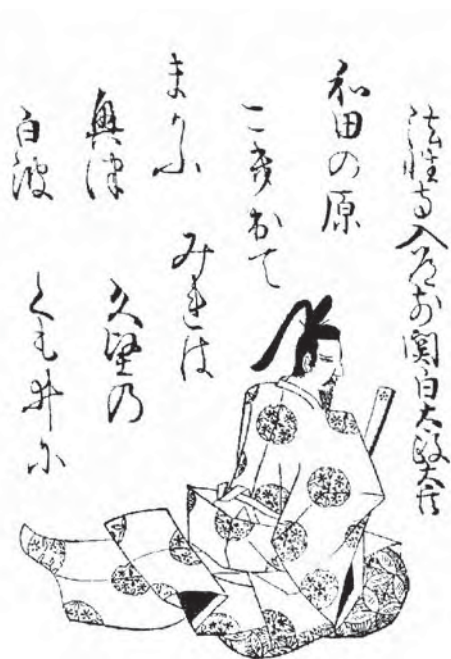 法性寺入道前関白太政大臣
和田の原
こき出て
みれは
久堅乃
くも井に
まかふ
奥津
白波